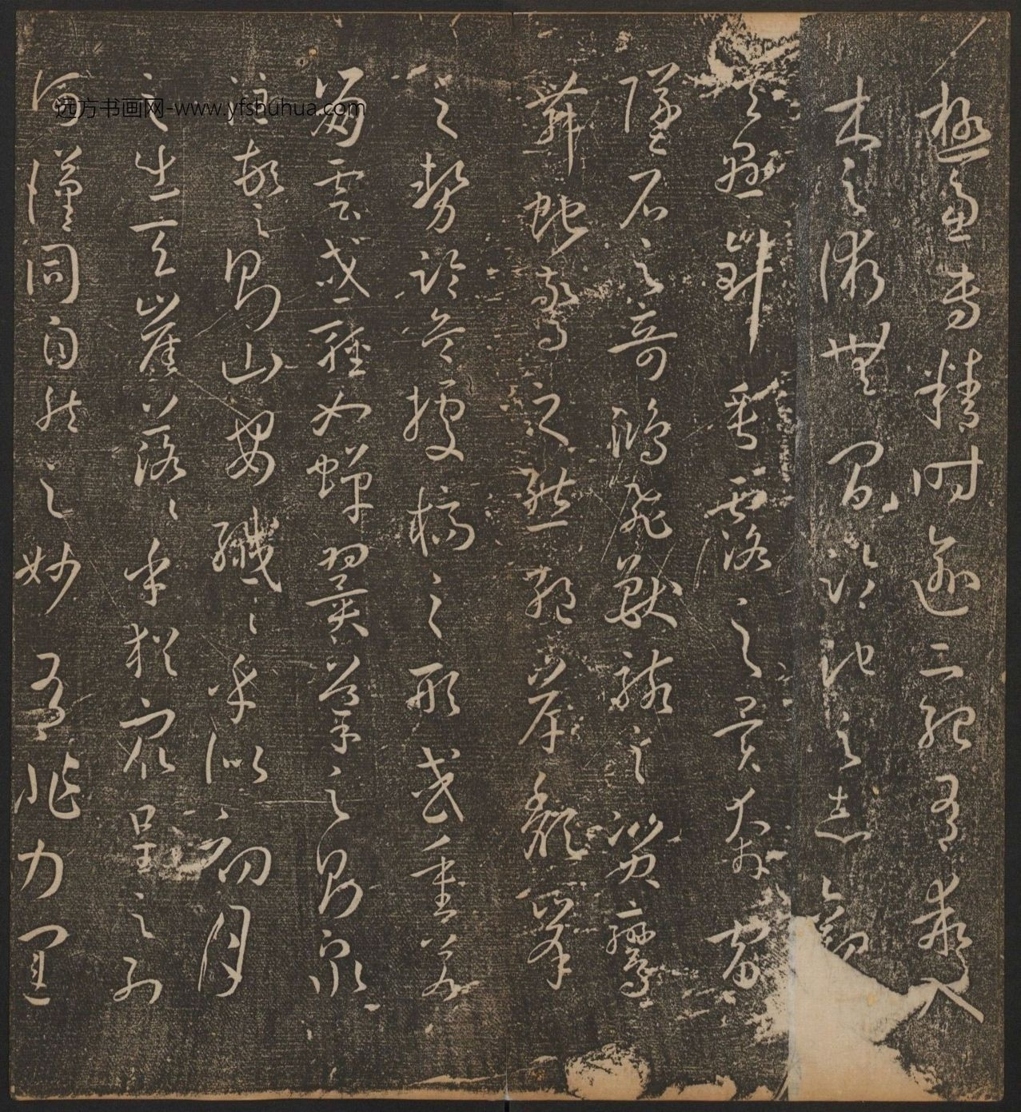 極慮專精時逾二紀有乖入
木之術無間臨池之志觀
夫懸針垂露之異奔雷
墜石之奇鴻飛獸駭之資鸞
舞蛇驚之態絕岸頹峯
之勢臨危據槁之形或重若
崩雲或輕如蟬翼導之則泉
注頓之則山安纖〻乎似初月
之出天崖落〻乎猶衆星之列
河漢同自然之妙有非力運
远方书画网-www.yfshuhua.com